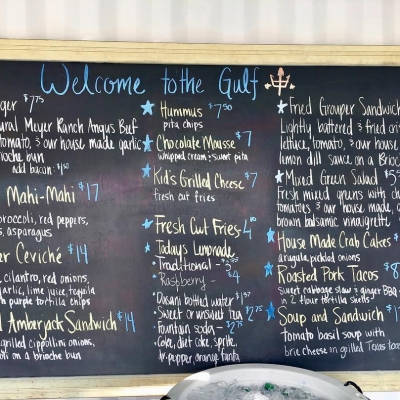 Welcome to the Gulf
ger $7.75
ural Meyer Ranch Angus Beef
tomato, & our house made garlic
rioche bun
add bacon $1.50
Mahi-Mahi $17
broccoli, red peppers,
s, asparagus
er Ceviché $14
cilantro, red onions,
garlic, lime juice, tequila
h purple tortilla chips
d Amberjack Sandwich $14
grilled cippollini onions,
oli on a brioche bun
Hummus $7.50
pita chips
Chocolate Mousse $7
whipped cream & sweet pita
Kid's Grilled Cheese $7
fresh cut fries
Fresh Cut Fries
Todays Lemonade
• Traditional -
• Raspberry - $4
• Dasani bottled water $1.50
• Sweet or unsweet tea $2.75
• Fountain soda - $2.75
• Coke, diet coke, sprite,
dr. pepper, orange fanta
Fried Grouper Sandwich
Lightly battered & fried cri
lettuce, tomato, & our house
lemon dill sauce on a Brioc
Mixed Green Salad $5
fresh mixed greens with ch
tomatoes & our house made,
brown balsamic vinaigrette
House Made Crab Cakes $
arugula, pickled onions
Roasted Pork Tacos $8
sweet cabbage slaw & ginger BBQ
in 2 flour tortilla shells
Soup and Sandwich $1
Tomato basil soup with
brie cheese in grilled Texas toas